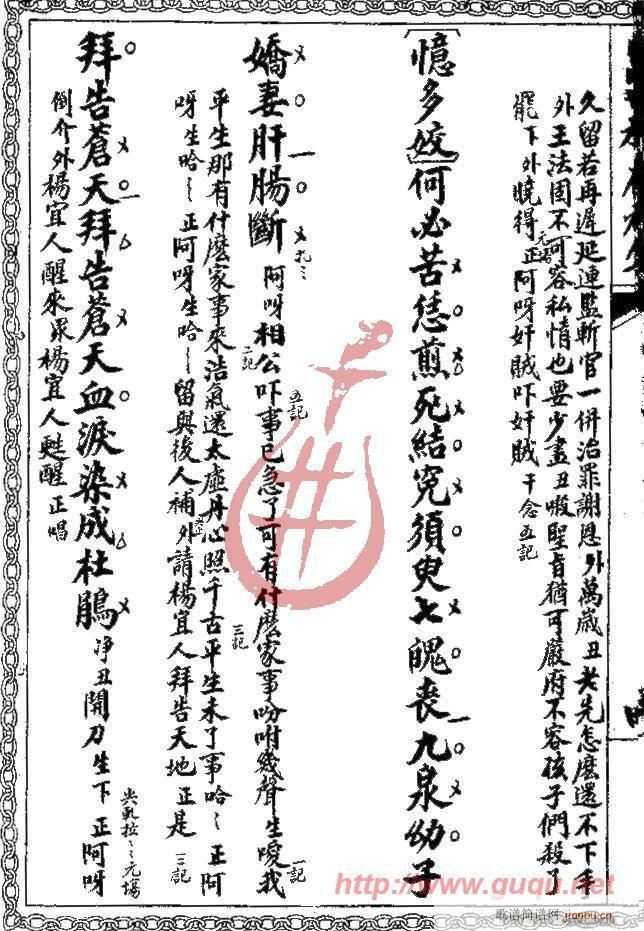 久留若再遲延連監斬官一併治罪謝恩外萬歲丑老先怎麼還不下手
外王法固不可容私情也要少盡丑呔聖旨猶可嚴府不容孩子們殺了
罷下外曉得正阿呀奸賊吓奸賊干念五記
元場
[憶多姣]何必苦恁煎死結冤須臾七魄喪九泉幼子
嬌妻肝腸斷阿呀相公吓事已急了可有什麼家事吩咐幾聲生噯我
扎ミ
五記
一記
平生那有什麼家事來浩氣還太虛丹心照千古平生未了事哈ミ正阿
二記
三記
呀生哈ミ正阿呀生哈ミ留與後人補外請楊宜人拜告天地正是
三記
拜告蒼天拜告蒼天血淚染成杜鵑淨丑開刀生下正阿呀
倒介外楊宜人醒來眾楊宜人甦醒正唱
http://www.guqu.net
歌谱简谱网
jianpu.cn